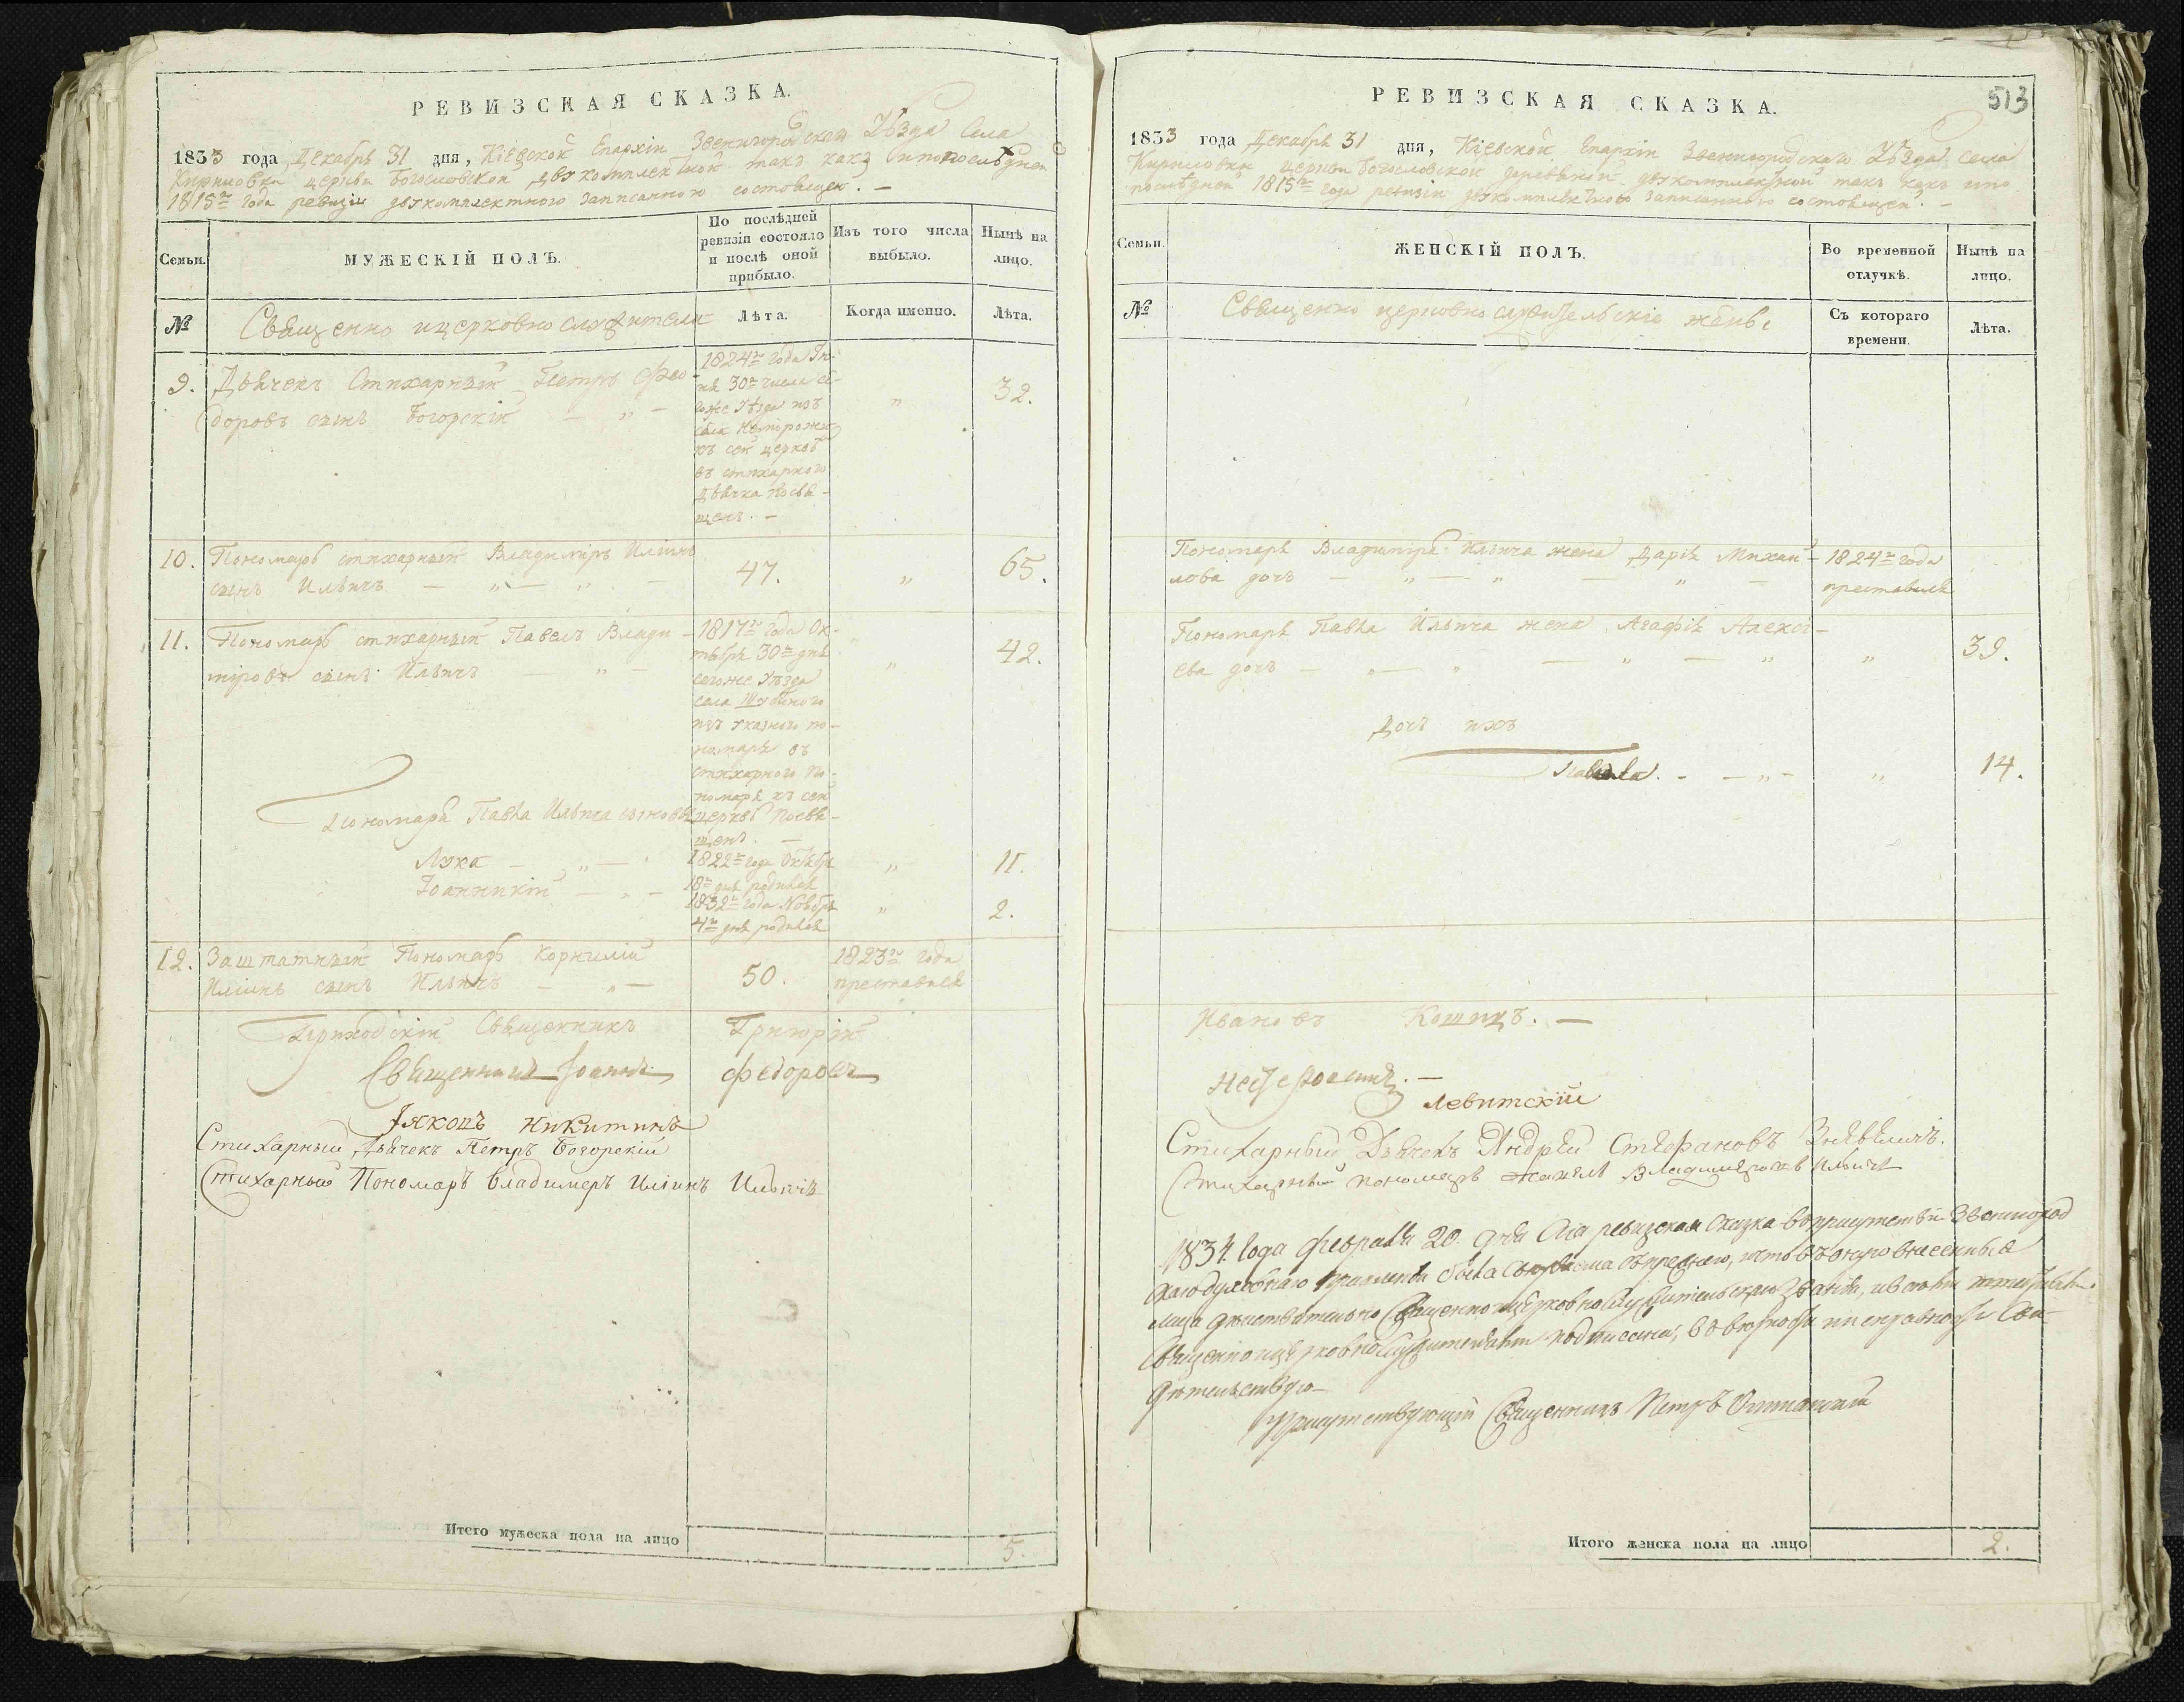 РЕВИЗСКАЯ СКАЗКА.
1833 года Декабря 31 дня, Кіевской Епархіи Звенигородской Уѣзда Села
Кириловки церкви Богословской двукомплектной такъ какъ и по последней
1815го года ревизіи двукомплектного записанною состоящей. —
Семьи.
МУЖЕСКІЙ ПОЛЪ.
По послѣдней
ревизіи состояло
и послѣ оной
прибыло.
Изъ того числа
выбыло.
Нынѣ на
лицо.
№
Священно и церковно служители
Лѣта.
Когда именно.
Лѣта.
9. Дьячекъ Стихарный Петръ Фео-
доровъ сынъ Богорскій — „ —
1824го года Iю-
ня 30го числа се-
гоже Уѣзда изъ
села
къ сей церкви
въ стихарного
Дьячка посвя-
щенъ. —
„
32.
10. Пономарь стихарный Владимиръ Иліинъ
сынъ Ильичъ — „ — „ —
47.
„
65.
11. Пономарь стихарный Павелъ Влади-
міровъ сынъ Ильичъ — „ —
1817го года Ок-
тября 30го дня
сегоже Уѣзда
села
изъ Указного по-
номаря въ
стихарного По-
номаря къ сей
церкви посвя-
щенъ. —
„
42.
Пономаря Павла Ильича сыновья
Лука — „ —
1822го года Октября
18го дня родился
„
11.
Іоанникій — „ —
1832го года Ноября
4го дня родился
„
2.
12. Заштатный Пономарь Корнилій
Иліинъ сынъ Ильичъ — „ —
50.
1823го года
преставился
Приходскій Священникъ Григорій
Священникъ Іоаннъ Федоровъ
Іяковъ Никитинъ
Стихарный Дьячекъ Петръ Богорскій
Стихарный Пономарь Владимеръ Илiинъ Ильичъ
Итого мужеска пола на лицо
5.
513
РЕВИЗСКАЯ СКАЗКА.
1833 года Декабря 31 дня, Кіевской Епархіи Звенигородскаго Уѣзда села
Кириловки церкви Богословской деревяной двукомплектной такъ какъ и по
послѣдней 1815го года ревизіи двукомплектного записанного состоящей. —
Семьи.
ЖЕНСКІЙ ПОЛЪ.
Во временной
отлучкѣ.
Нынѣ на
лицо.
№
Священно церковно служительскіе жены
Съ котораго
времени.
Лѣта.
Пономаря Владимира Ильича жена Дарія Михаи-
лова дочь — „ — „ — „ —
1824го года
преставися
Пономаря Павла Ильича жена Агафія Алексі-
ева дочь — „ — „ — „ — „
„
39.
Дочь ихъ
— „ —
„
14.
Ивановъ Кошицъ. —
Левитскій
Стихарный Дьячекъ Андрей Стефановъ
Стихарный пономарь Владимеровъ Ильичъ
1834 Года Февраля 20. дня Сіа ревизская сказка въ присутствіи Звенигород
скаго духовнаго правленія была съ прежнею, что въ оную внесенные
лица дѣйствительно Священно и церковнослужительскаго званія,
Священно и церковнослужителями подписана, въ вѣрности и исправности Сви-
дѣтельствую
Присутствующій Священникъ Петръ
Итого женска пола на лицо
2.